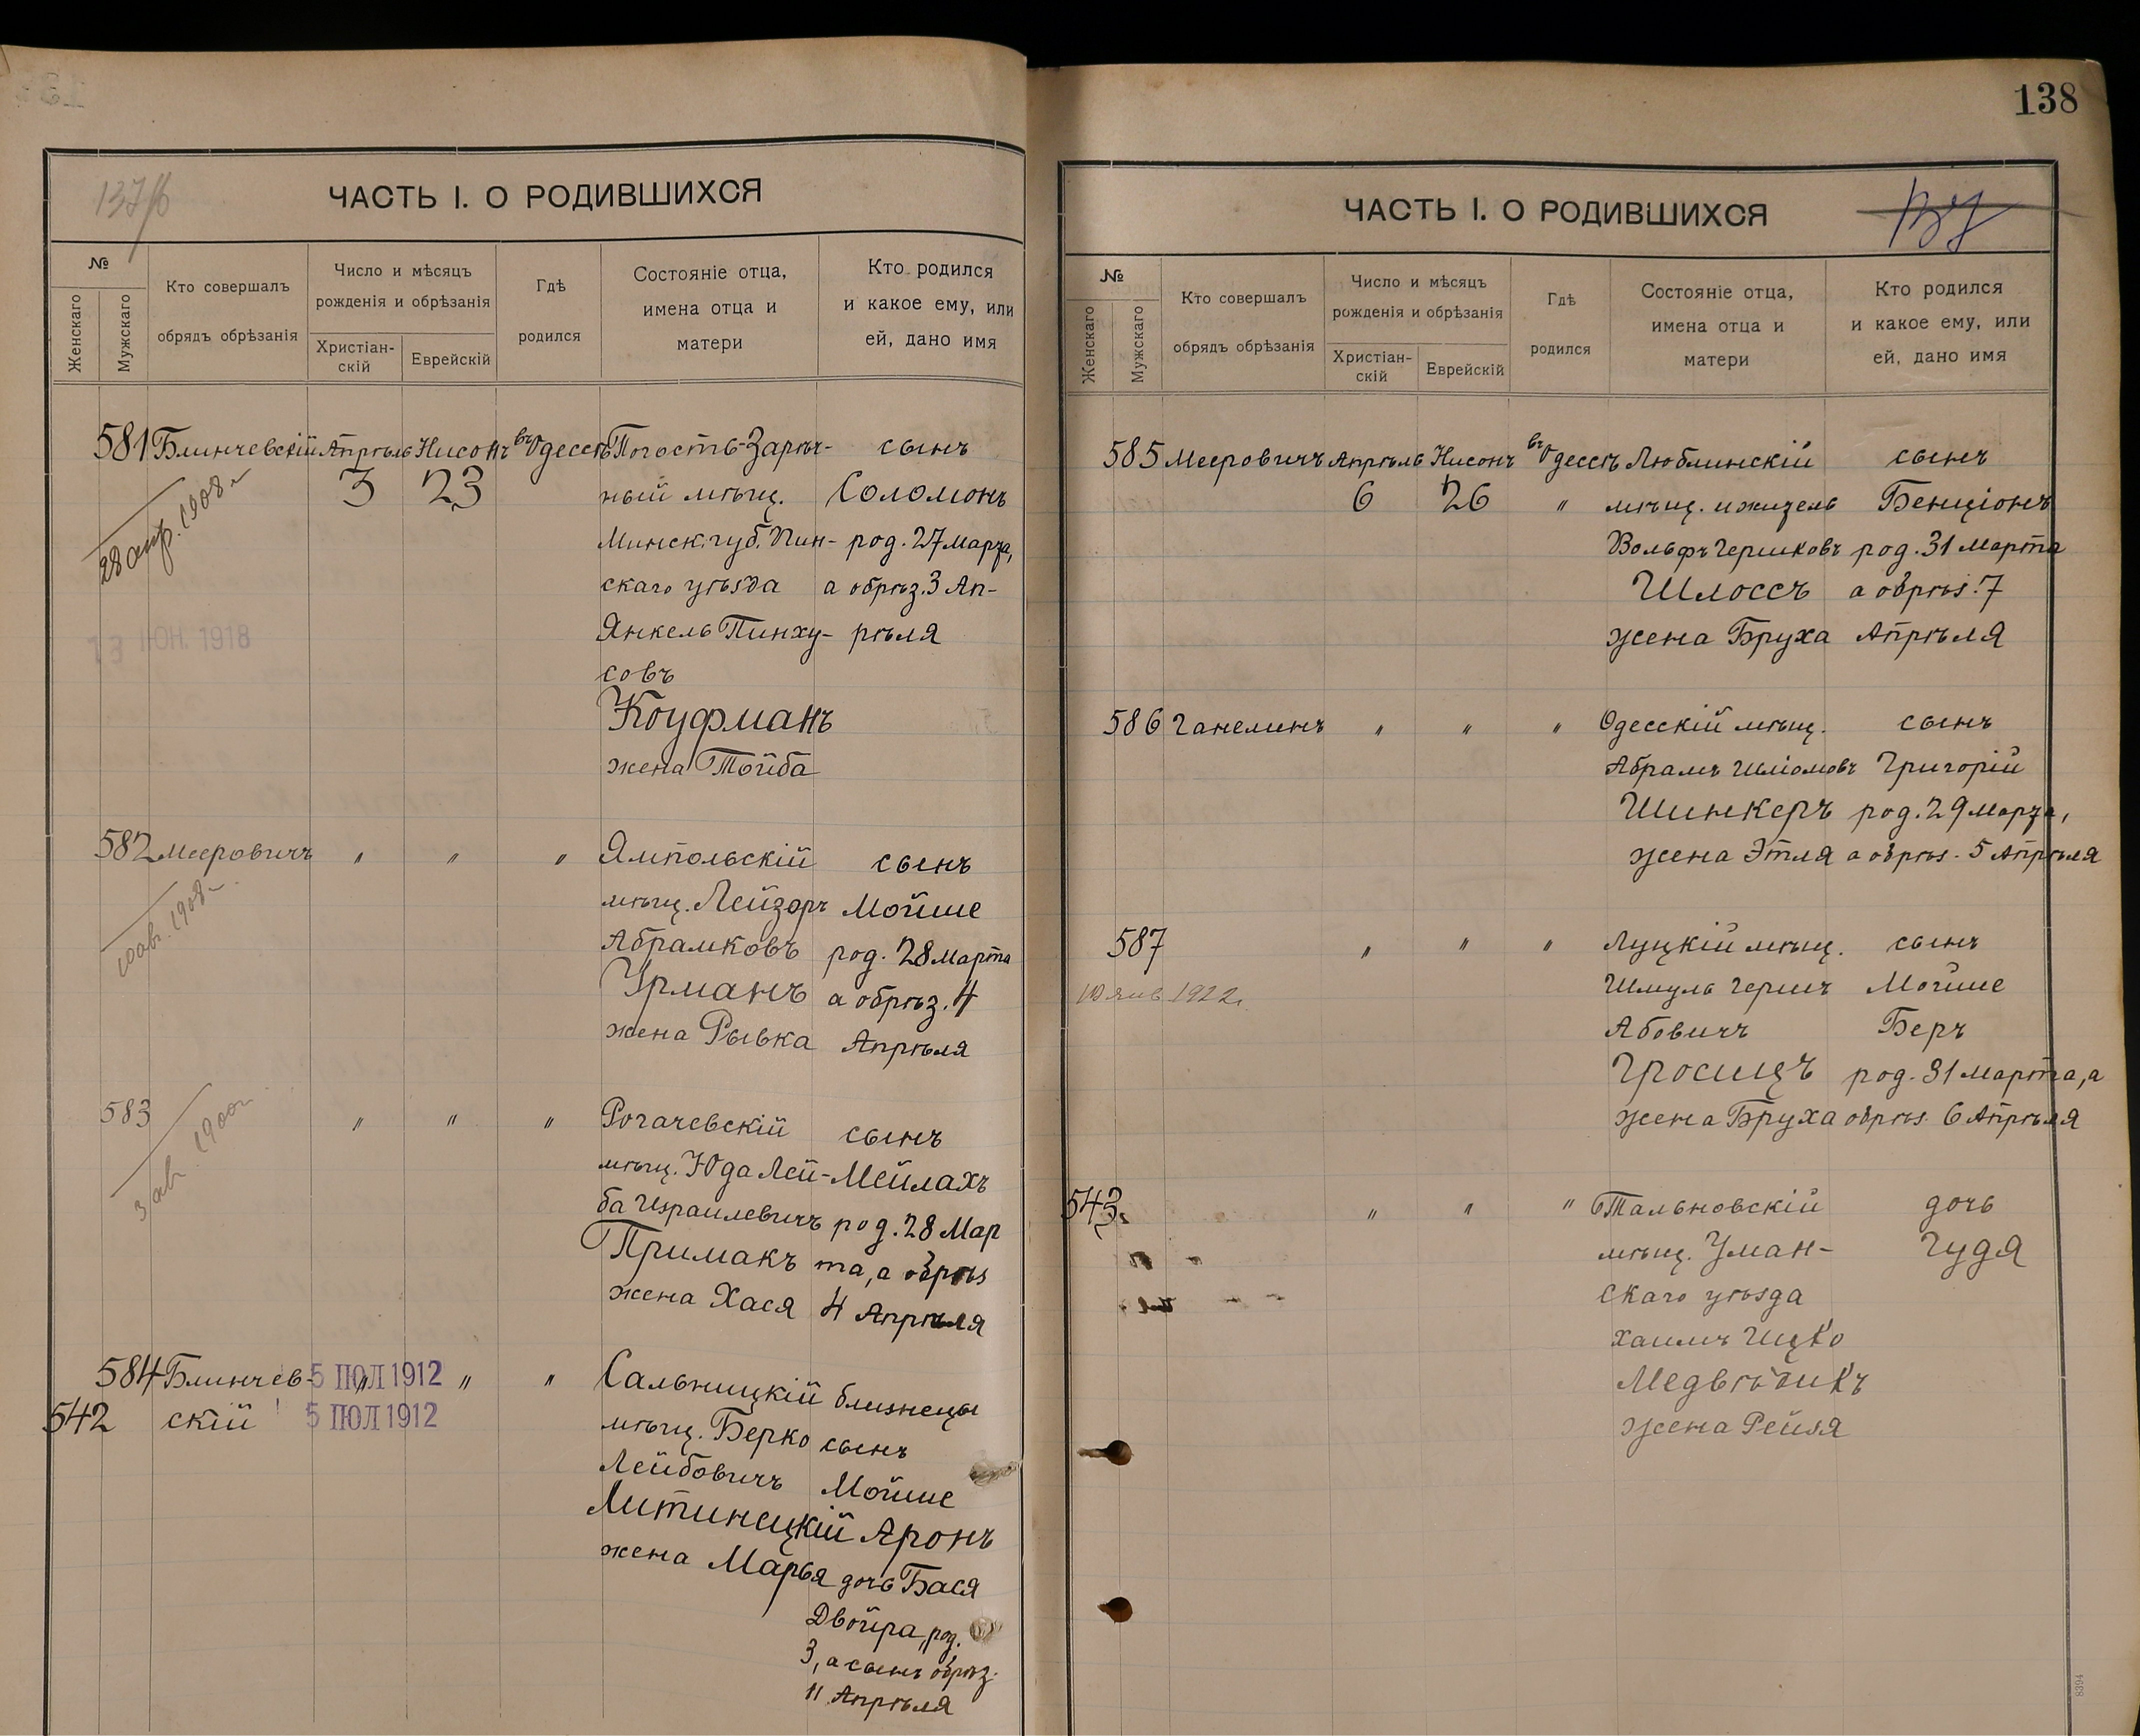 137/б
ЧАСТЬ I. О РОДИВШИХСЯ
№
Женскаго
Мужскаго
Кто совершалъ
обрядъ обрѣзанія
Число и мѣсяцъ
рожденія и обрѣзанія
Христіан-
скій
Еврейскій
Гдѣ
родился
Состояніе отца,
имена отца и
матери
Кто родился
и какое ему, или
ей, дано имя
581 Блинчевскій Апрѣль Нисонъ въ Одессѣ Погость-Зарѣч- сынъ
3 23 ный мѣщ. Соломонъ
28 апр. 1908 г.
Минск. губ. Пин- род. 27 марта,
скаго уѣзда а обрѣз. 3 Ап-
Янкель Пинху- рѣля
13 ІЮН. 1918
совъ
Коуфманъ
жена Тойба
582 Мееровичъ " " " Ямпольскій сынъ
мѣщ. Лейзоръ Мойше
10 авг. 1908 г.
Абрамковъ род. 28 Марта
Урманъ а обрѣз. 4
жена Рывка Апрѣля
583 " " " Рогачевскій сынъ
мѣщ. Юда Лей- Мейлахъ
3 авг.
ба Израилевичъ род. 28 Мар
Примакъ та, а обрѣз
жена Хася 4 Апрѣля
584 Блинчев- 5 ІЮЛ 1912 " " " Сальницкій близнецы
542 скій 5 ІЮЛ 1912 мѣщ. Берко сынъ
Лейбовичъ Мойше
Литинецкій Аронъ
жена Марья дочь Бася
Двойра, род.
3, а сынъ обрѣз.
11 Апрѣля
138
ЧАСТЬ I. О РОДИВШИХСЯ
№
Женскаго
Мужскаго
Кто совершалъ
обрядъ обрѣзанія
Число и мѣсяцъ
рожденія и обрѣзанія
Христіан-
скій
Еврейскій
Гдѣ
родился
Состояніе отца,
имена отца и
матери
Кто родился
и какое ему, или
ей, дано имя
585 Мееровичъ Апрѣль Нисонъ въ Одессѣ Люблинскій сынъ
6 26 " мѣщ. и житель Бенціонъ
Вольфъ Гершковъ род. 31 Марта
Шлоссъ а обрѣз. 7
жена Бруха Апрѣля
586 Ганелинъ " " " Одесскій мѣщ. сынъ
Абрамъ Шліомовъ Григорій
Шинкеръ род. 29 Марта,
жена Этля а обрѣз. 5 Апрѣля
587 " " " Луцкій мѣщ. сынъ
10 янв 1922 г. Шмуль Гершъ Мойше
Абовичъ Беръ
Гросицъ род. 31 Марта, а
жена Бруха обрѣз. 6 Апрѣля
543. " " " Тальновскій дочь
мѣщ. Уман- Гудя
скаго уѣзда
Хаимъ Ицко
Медвѣдикъ
жена Рейзя
8394